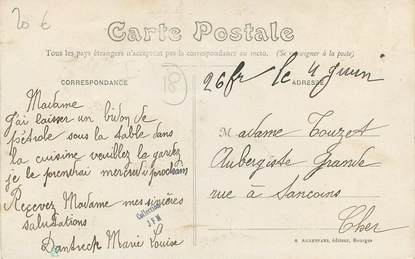 20 €
Carte Postale
Tous les pays étrangers n'acceptent pas la correspondance au recto. (Se renseigner à la poste)
CORRESPONDANCE
18
ADRESSE
26fr le 4 Juin
Madame
j'ai laisser un bidon de
pétrole sous la table dans
la cuisine veuillez la garder
je le prendrai mercredi prochain
Recevez Madame mes sincères
salutations
Marie Louise
Collection
JFM
Madame Touzet
Aubergiste Grande
rue à Sancoins
Cher
éditeur, Bourges